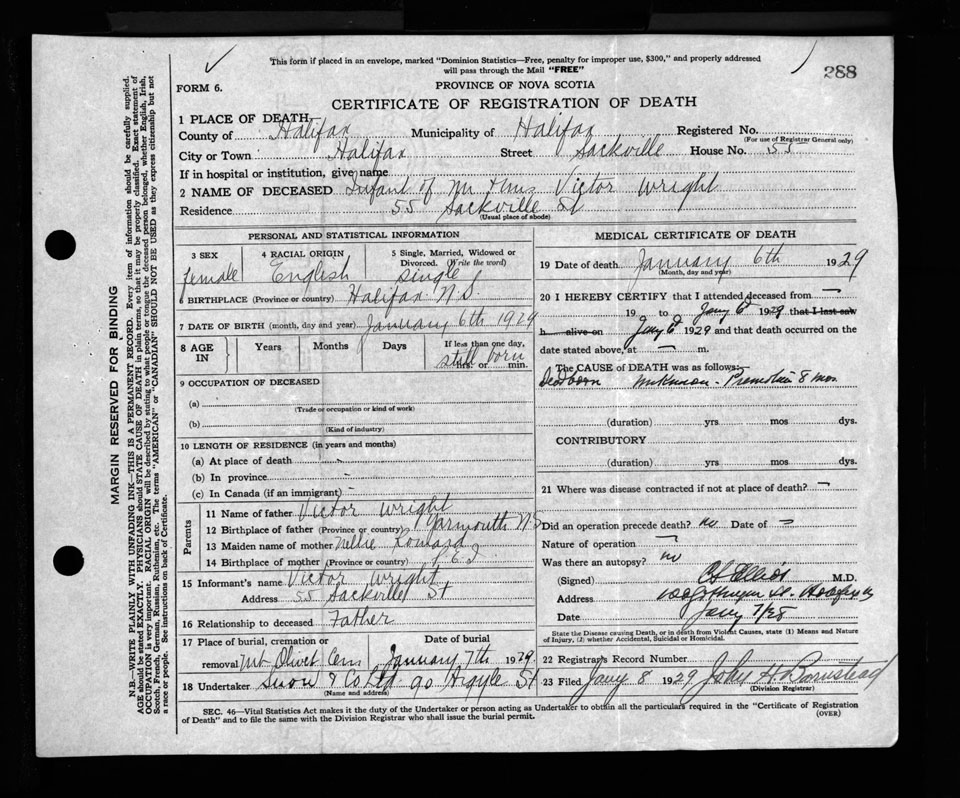 This form if placed in an envelope, marked "Dominion Statistics—Free, penalty for improper use, $300," and properly addressed
will pass through the Mail "FREE"
288
FORM 6.
PROVINCE OF NOVA SCOTIA
CERTIFICATE OF REGISTRATION OF DEATH
1 PLACE OF DEATH
County of Halifax Municipality of Halifax Registered No.
(For use of Registrar General only)
City or Town Halifax Street Sackville House No. 55
If in hospital or institution, give name
2 NAME OF DECEASED Infant of Mr & Mrs Victor Wright
Residence 55 Sackville St
(Usual place of abode)
PERSONAL AND STATISTICAL INFORMATION
3 SEX female
4 RACIAL ORIGIN English
5 Single, Married, Widowed or Divorced. (Write the word) Single
6 BIRTHPLACE (Province or country) Halifax N.S.
7 DATE OF BIRTH (month, day and year) January 6th 1929
8 AGE IN Years Months Days If less than one day, hrs. or min. still born
9 OCCUPATION OF DECEASED
(a)
(Trade or occupation or kind of work)
(b)
(Kind of industry)
10 LENGTH OF RESIDENCE (in years and months)
(a) At place of death
(b) In province
(c) In Canada (if an immigrant)
Parents
11 Name of father Victor Wright
12 Birthplace of father (Province or country) Yarmouth N.S
13 Maiden name of mother Nellie
14 Birthplace of mother (Province or country) P.E.I
15 Informant's name Victor Wright
Address 55 Sackville St
16 Relationship to deceased Father
17 Place of burial, cremation or removal Mt Olivet Cem
Date of burial January 7th 1929
18 Undertaker Snow & Co Ltd 90 Argyle St
(Name and address)
MEDICAL CERTIFICATE OF DEATH
19 Date of death January 6th 1929
(Month, day and year)
20 I HEREBY CERTIFY that I attended deceased from —
19 to Jany 6 1929 that I last saw
h alive on Jany 6 1929 and that death occurred on the
date stated above, at — m.
The CAUSE of DEATH was as follows:
8 mos.
(duration) yrs mos dys.
CONTRIBUTORY
(duration) yrs mos dys.
21 Where was disease contracted if not at place of death? —
Did an operation precede death? no Date of —
Nature of operation —
Was there an autopsy? no
(Signed) M.D.
Address
Date Jany 7/28
State the Disease causing Death, or in death from Violent Causes, state (1) Means and Nature
of Injury, (2) whether Accidental, Suicidal or Homicidal.
22 Registrar's Record Number
23 Filed Jany 8 1929 John H Barnstead
(Division Registrar)
SEC. 46—Vital Statistics Act makes it the duty of the Undertaker or person acting as Undertaker to obtain all the particulars required in the "Certificate of Registration
of Death" and to file the same with the Division Registrar who shall issue the burial permit.
(OVER)
MARGIN RESERVED FOR BINDING
N.B.—WRITE PLAINLY WITH UNFADING INK—THIS IS A PERMANENT RECORD. Every item of information should be carefully supplied.
AGE should be stated EXACTLY. PHYSICIANS should STATE CAUSE OF DEATH in plain terms, so that it may be properly classified. Exact statement of
OCCUPATION is very important. RACIAL ORIGIN will be described by stating to what people or tongue the deceased person belonged, whether English, Irish,
Scotch, French, German, Russian, Ruthenian, etc. The terms "AMERICAN" or "CANADIAN" SHOULD NOT BE USED as they express citizenship but not
a race or people. See instructions on back of Certificate.